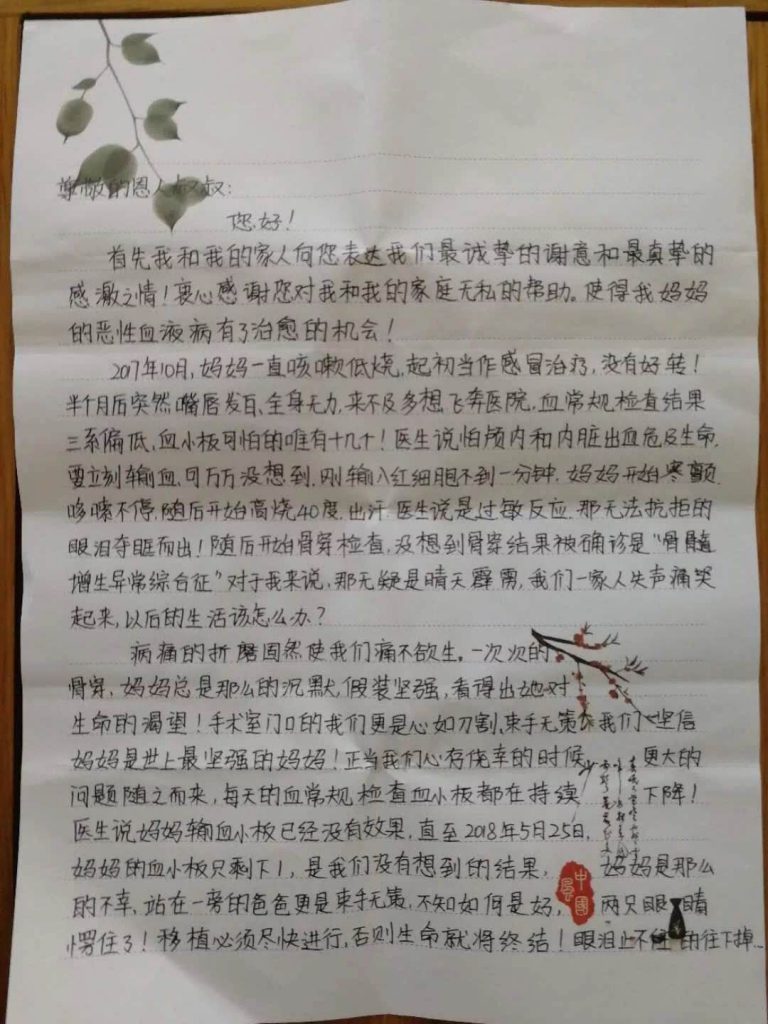 尊敬的恩人叔叔:
您好!
首先我和我的家人向您表达我们最诚挚的谢意和最真挚的
感激之情!衷心感谢您对我和我的家庭无私的帮助。使得我妈妈
的恶性血液病有了治愈的机会!
2017年10月,妈妈一直咳嗽低烧,起初当作感冒治疗,没有好转!
半个月后突然嘴唇发白、全身无力,来不及多想飞奔医院,血常规检查结果
三系偏低,血小板可怕的唯有十几个!医生说怕颅内和内脏出血危及生命,
要立刻输血,可万万没想到,刚输入红细胞不到一分钟,妈妈开始寒颤
咳嗽不停,随后开始高烧40度.出汗.医生说是过敏反应.那无法抗拒的
眼泪夺眶而出!随后开始骨穿检查,没想到骨穿结果被确诊是“骨髓
增生异常综合征”对于我来说,那无疑是晴天霹雳,我们一家人失声痛哭
起来,以后的生活该怎么办?
病痛的折磨固然使我们痛不欲生。一次次的
骨穿,妈妈总是那么的沉默,假装坚强,看得出她对
生命的渴望!手术室门口的我们更是心如刀割、束手无策 我们 坚信
妈妈是世上最坚强的妈妈!正当我们心存侥幸的时候, 更大的
问题随之而来,每天的血常规检查血小板都在持续 下降!
医生说妈妈输血小板已经没有效果,直至2018年5月25日,
妈妈的血小板只剩下1,是我们没有想到的结果, 妈妈是那么
的不幸,站在一旁的爸爸更是束手无策,不知如何是好, 两只眼睛
愣住了!移植必须尽快进行,否则生命就将终结!眼泪止不住的往下掉...
中國風